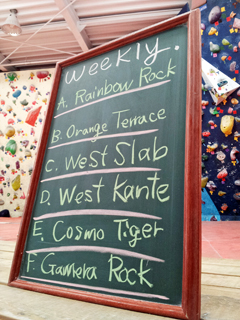 Weekly.
A. Rainbow Rock
B. Orange Terrace
C. West Slab
D. West Kante
E. Cosmo Tiger
F. Gamera Rock